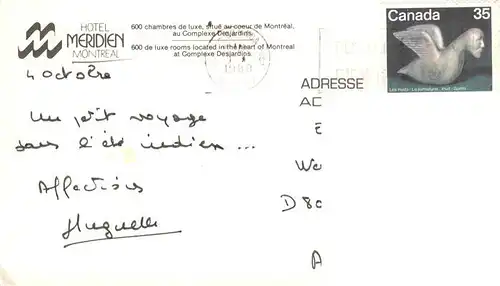 HOTEL
MERIDIEN
MONTREAL
600 chambres de luxe, situé au coeur de Montréal,
au Complexe Desjardins.
600 de luxe rooms located in the heart of Montreal
at Complexe Desjardins.
Canada 35
4 octobre
ADRESSE
AD
Un petit voyage
dans l'été indien ...
Affections
Huguette
E
We
D 80
A